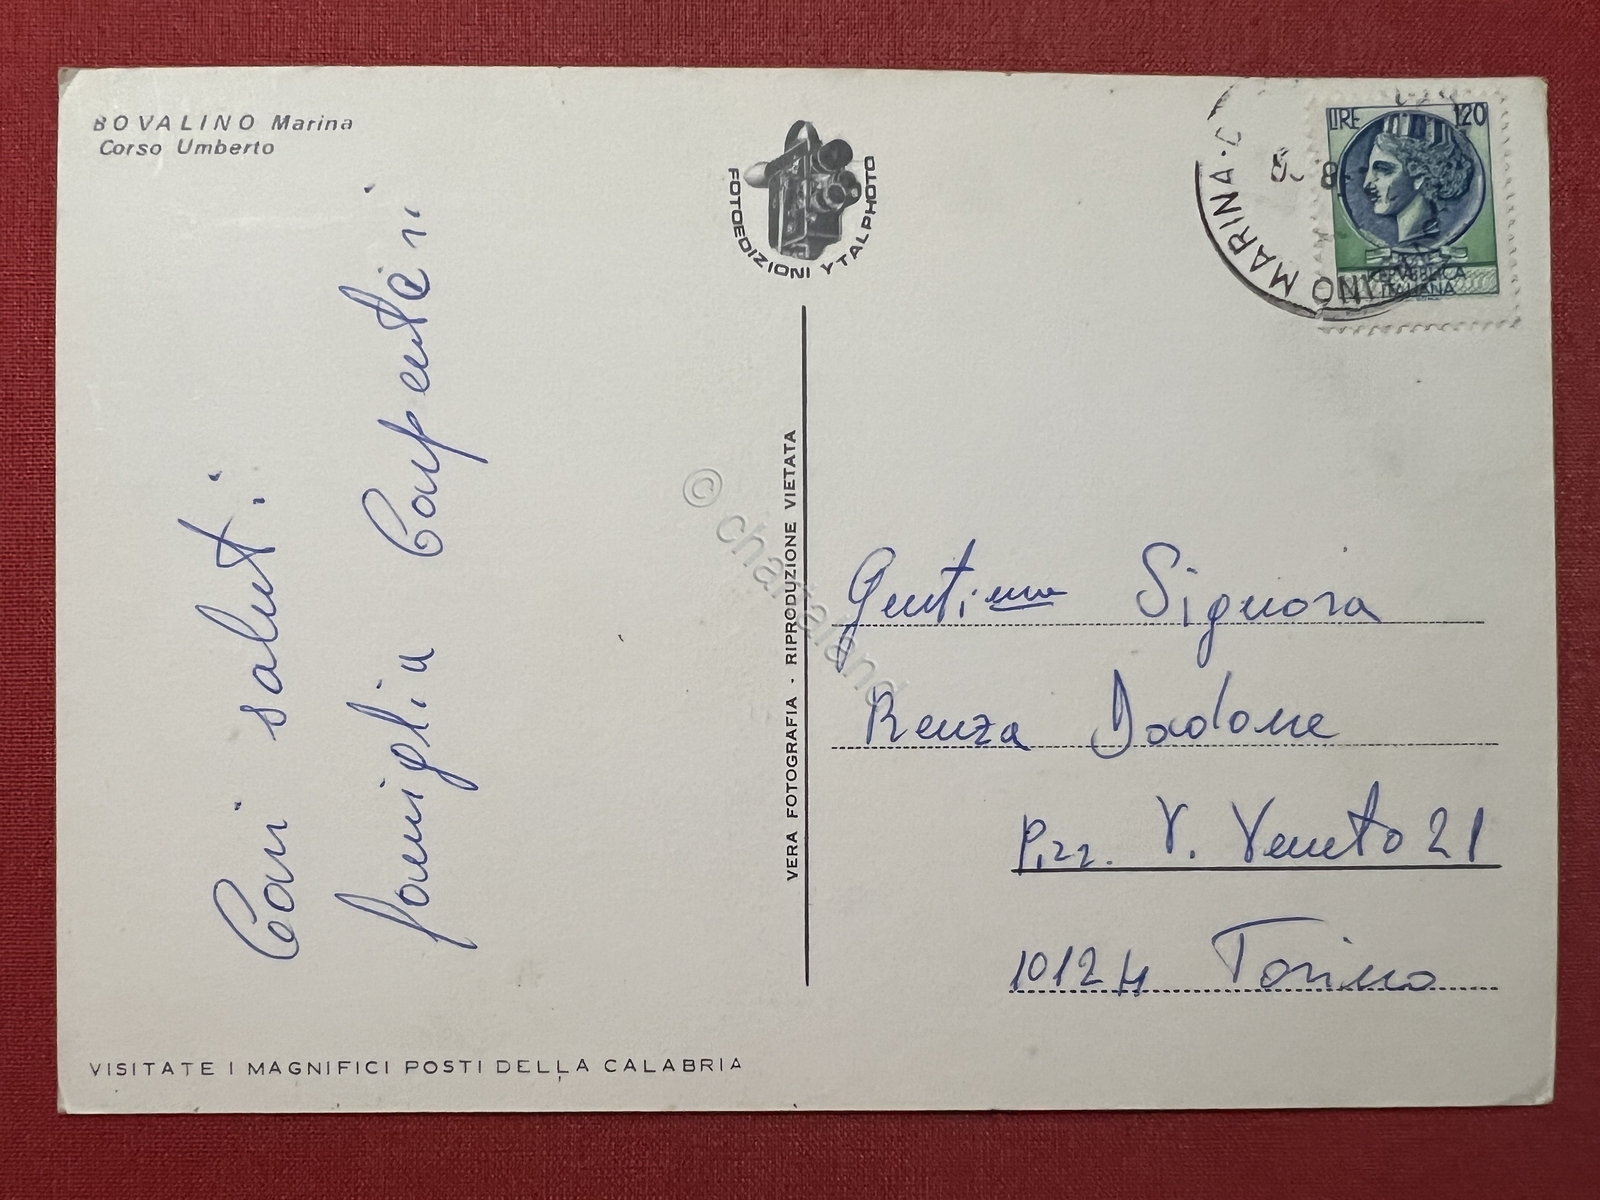 BOVALINO Marina
Corso Umberto
FOTOEDIZIONI YTALPHOTO
LIRE 120
REPUBBLICA
ITALIANA
MARINA
Cari saluti
famiglia Carpenteri
VERA FOTOGRAFIA - RIPRODUZIONE VIETATA
© chartaland
Gentima Signora
Renza Dadone
P.zz. V. Veneto 21
10124 Torino
VISITATE I MAGNIFICI POSTI DELLA CALABRIA